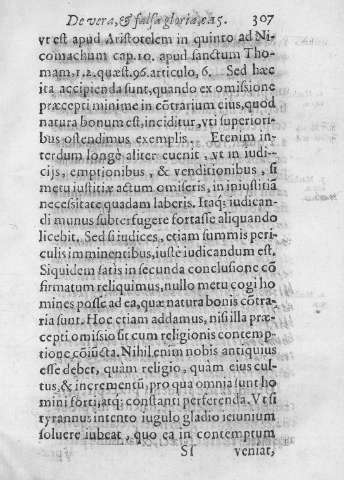 De vera, & falsa gloria, c.15. 307
vt est apud Aristotelem in quinto ad Ni-
comachum cap. 10. apud sanctum Tho-
mam, 1. 2. quæst. 96. articulo, 6. Sed hæc
ita accipienda sunt, quando ex omissione
præcepti minime in cōtrarium eius, quod
natura bonum est, inciditur, vti superiori-
bus ostendimus exemplis. Etenim in-
terdum longè aliter euenit, vt in iudi-
cijs, emptionibus, & venditionibus, si
metu iustitiæ actum omiseris, in iniustitiā
necessitate quadam laberis. Itaq; iudican-
di munus subterfugere fortasse aliquando
licebit. Sed si iudices, etiam summis peri-
culis imminentibus, iustè iudicandum est.
Siquidem satis in secunda conclusione cō
firmatum reliquimus, nullo metu cogi ho
mines posse ad ea, quæ natura bonis cōtra-
ria sunt. Hoc etiam addamus, nisi illa præ-
cepti omissio sit cum religionis contemp-
tione cōiūcta. Nihil enim nobis antiquius
esse debet, quàm religio, quàm eius cul-
tus, & incrementū, pro qua omnia sunt ho
mini forti, atq; constanti perferenda. Vt si
tyrannus intento iugulo gladio ieiunium
soluere iubeat, quo ea in contemptum
Sſ veniat,